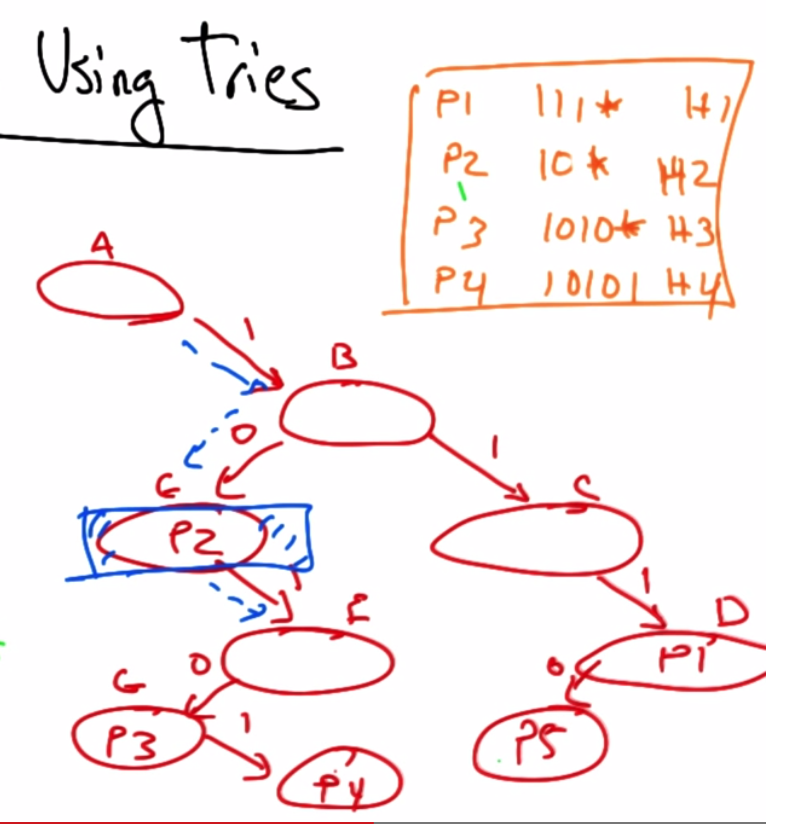 Using Tries
P1 111* H1
P2 10* H2
P3 1010* H3
P4 10101 H4
A
1
B
0 1
G C
P2
1 1
E D
0 P1
G 0
P3 1 P5
P4